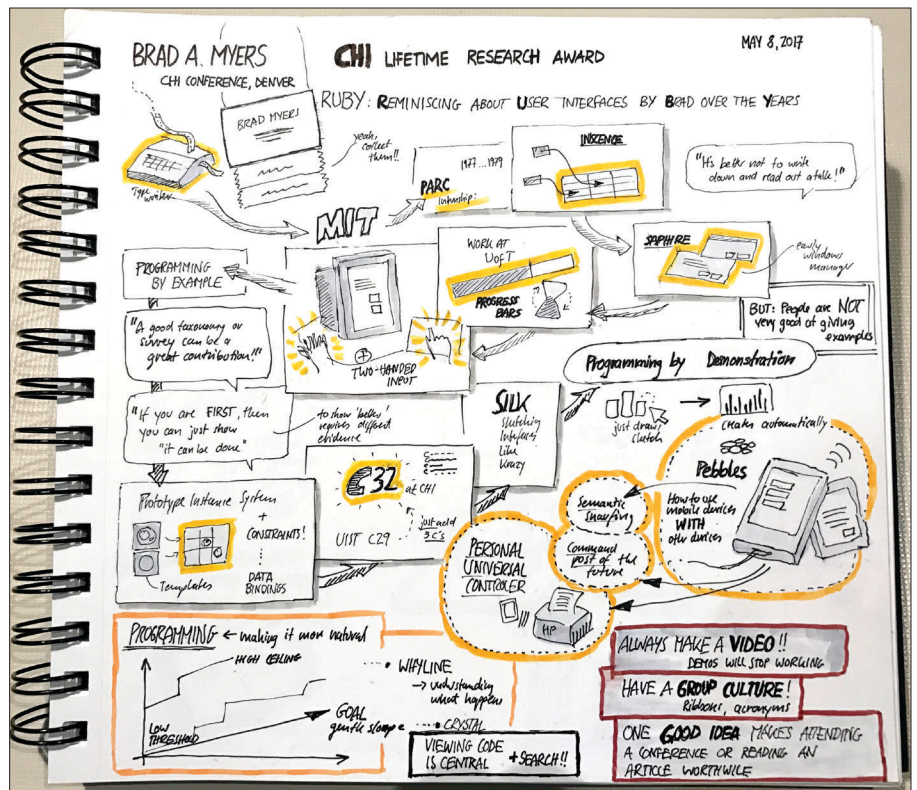 BRAD A. MYERS
CHI CONFERENCE, DENVER
CHI LIFETIME RESEARCH AWARD
MAY 8, 2017
RUBY: REMINISCING ABOUT USER INTERFACES BY BRAD OVER THE YEARS
BRAD MYERS
yeah,
collect
them!!
Type
writer
MIT
1977...1979
PARC
Internship:
"It's better not to write
down and read out a talk!"
PROGRAMMING
BY EXAMPLE
WORK AT
UofT
PROGRESS
BARS
SAPHIRE
early
windows
manager
BUT: People are NOT
very good at giving
examples
"A good taxonomy or
survey can be a
great contribution!!"
TWO-HANDED
INPUT
Programming by Demonstration
"If you are FIRST, then
you can just show
"it can be done"
to show 'better'
requires different
evidence
SILK
Sketching
Interfaces
Like
Krazy
just draw/
sketch
creates automatically
Pebbles
How to use
mobile devices
WITH
other devices
C32 at CHI
UIST C29
just add
3 C's
Semantic
Snarfing
Command
post of the
future
Prototype Instance System
+
CONSTRAINTS!
DATA
BINDINGS
Templates
PERSONAL
UNIVERSAL
CONTROLER
HP
PROGRAMMING ← making it more natural
HIGH CEILING
LOW
THRESHOLD
GOAL
gentle slope
WHYLINE
→ understanding
what happens
CRYSTAL
VIEWING CODE
IS CENTRAL + SEARCH!!
ALWAYS MAKE A VIDEO!!
DEMOS WILL STOP WORKING
HAVE A GROUP CULTURE!
Ribbons, acronyms
ONE GOOD IDEA MAKES ATTENDING
A CONFERENCE OR READING AN
ARTICLE WORTHWILE